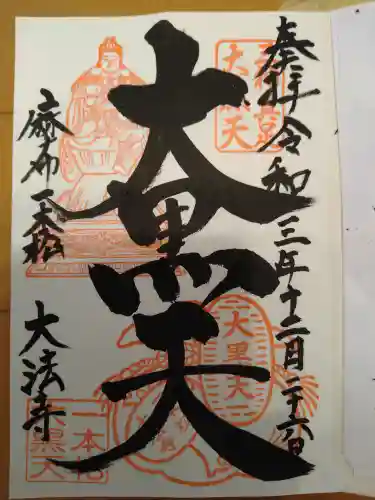 奉拝令和三年十二月二十六日
大黒天
麻布一本松
大法寺
大黒天
大黒天
一本松
大黒天